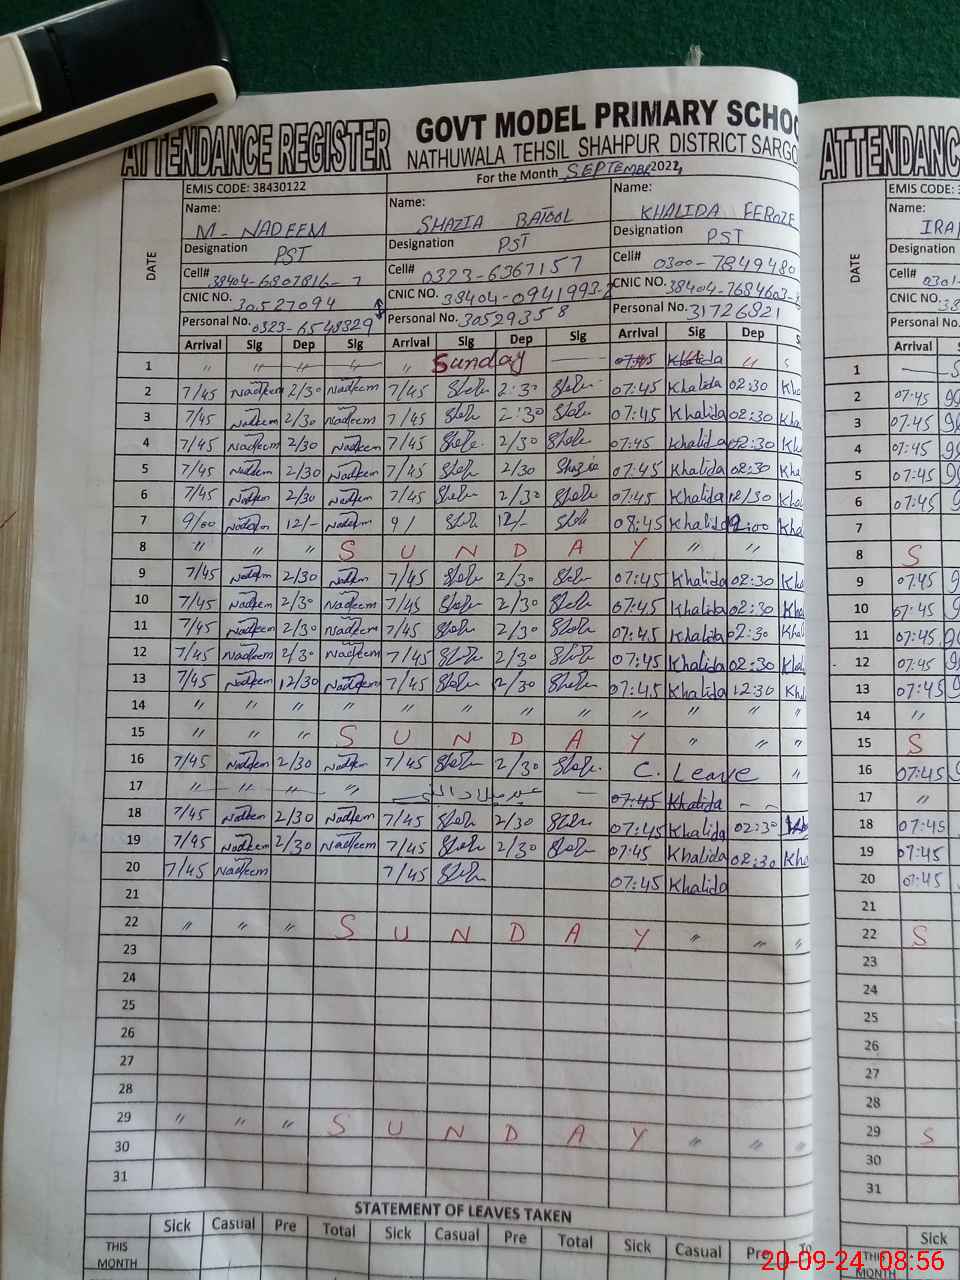 ATTENDANCE REGISTER GOVT MODEL PRIMARY SCHOO
NATHUWALA TEHSIL SHAHPUR DISTRICT SARGO
ATTENDANCE
EMIS CODE: 38430122 For the Month SEPTEMBR 2024
DATE
Name: M- NADEEM Name: SHAZIA BATOOL Name: KHALIDA FEROZE
Designation PST Designation PST Designation PST
Cell# 38404-6807816-7 Cell# 0323-6367157 Cell# 0300-7849480
CNIC NO. 30527094 CNIC NO. 38404-0941993- CNIC NO. 38404-7684603-
Personal No. 0323-6548329 Personal No. 30529358 Personal No. 31726921
Arrival Sig Dep Sig Arrival Sig Dep Sig Arrival Sig Dep S
1 " " " " " Sunday 07:45 Khalida " S
2 7/45 Nadeem 2/30 Nadeem 7/45 2:30 07:45 Khalida 02:30 Kha
3 7/45 Nadeem 2/30 Nadeem 7/45 2:30 07:45 Khalida 02:30 Kha
4 7/45 Nadeem 2/30 Nadeem 7/45 2/30 07:45 Khalida 02:30 Kh
5 7/45 Nadeem 2/30 Nadeem 7/45 2/30 Shazia 07:45 Khalida 02:30 Kha
6 7/45 Nadeem 2/30 Nadeem 7/45 2/30 07:45 Khalida 12/30 Kha
7 9/00 Nadeem 12/- Nadeem 9/ 12/- 08:45 Khalida 12:00 Kha
8 " " " S U N D A Y " "
9 7/45 Nadeem 2/30 Nadeem 7/45 2/30 07:45 Khalida 02:30 Kha
10 7/45 Nadeem 2/30 Nadeem 7/45 2/30 07:45 Khalida 02:30 Kha
11 7/45 Nadeem 2/30 Nadeem 7/45 2/30 07:45 Khalida 02:30 Khal
12 7/45 Nadeem 2/30 Nadeem 7/45 2/30 07:45 Khalida 02:30 Khal
13 7/45 Nadeem 12/30 Nadeem 7/45 2/30 07:45 Khalida 12:30 Kha
14 " " " " " " " " " " " "
15 " " " S U N D A Y " " "
16 7/45 Nadeem 2/30 Nadeem 7/45 2/30 C. Leave "
17 " " " " عید میلاد النبی 07:45 Khalida - -
18 7/45 Nadeem 2/30 Nadeem 7/45 2/30 07:45 Khalida 02:30
19 7/45 Nadeem 2/30 Nadeem 7/45 2/30 07:45 Khalida 02:30 Kha
20 7/45 Nadeem 7/45 07:45 Khalida
21
22 " " " S U N D A Y " " "
23
24
25
26
27
28
29 " " " S U N D A Y " " "
30
31
STATEMENT OF LEAVES TAKEN
Sick Casual Pre Total Sick Casual Pre Total Sick Casual Pre To
THIS MONTH
EMIS CODE: 3
Name:
IRA
DATE
Designation
Cell#
0301-
CNIC NO.
38
Personal No.
Arrival S
1 S
2 07:45
3 07:45
4 07:45
5 07:45
6 07:45
7
8 S
9 07:45
10 07:45
11 07:45
12 07:45
13 07:45
14 "
15 S
16 07:45
17 "
18 07:45
19 07:45
20 07:45
21
22 S
23
24
25
26
27
28
29 S
30
31
Sick
THIS MONTH
20-09-24 08:56